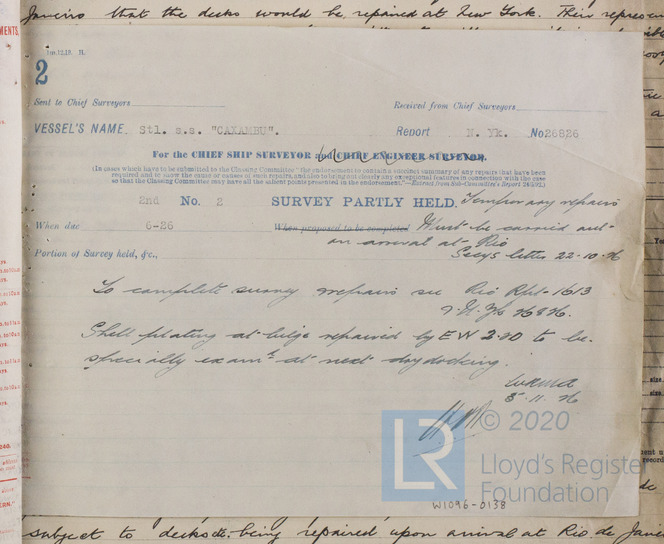 Janeiro that the decks would be repaired at New York. Their represen
MENTS.
2
Sent to Chief Surveyors
Received from Chief Surveyors
VESSEL'S NAME. Stl. s.s. "CAXAMBU".
Report N. Yk. No 26826
For the CHIEF SHIP SURVEYOR and CHIEF ENGINEER SURVEYOR.
(In cases which have to be submitted to the Classing Committee "the endorsement to contain a succinct summary of any repairs that have been
required and to show the cause or causes of such repairs, and also to bring out clearly any exceptional features in connection with the case
so that the Classing Committee may have all the salient points presented in the endorsement."—Extract from Sub-Committee's Report
2nd No. 2 SURVEY PARTLY HELD. Temporary repairs
When due 6-26 When proposed to be completed Must be carried out
on arrival at Rio
Secys letter 22.10.26
Portion of Survey held, &c.,
To complete survey repairs see Rio Rpt 1613
Shell plating at bilge repaired by EW 2.20 to be
specially examd at next drydocking.
5.11.26
LR © 2020
Lloyd's Register
Foundation
W1096-0138
subject to decks etc. being repaired upon arrival at Rio de Jane